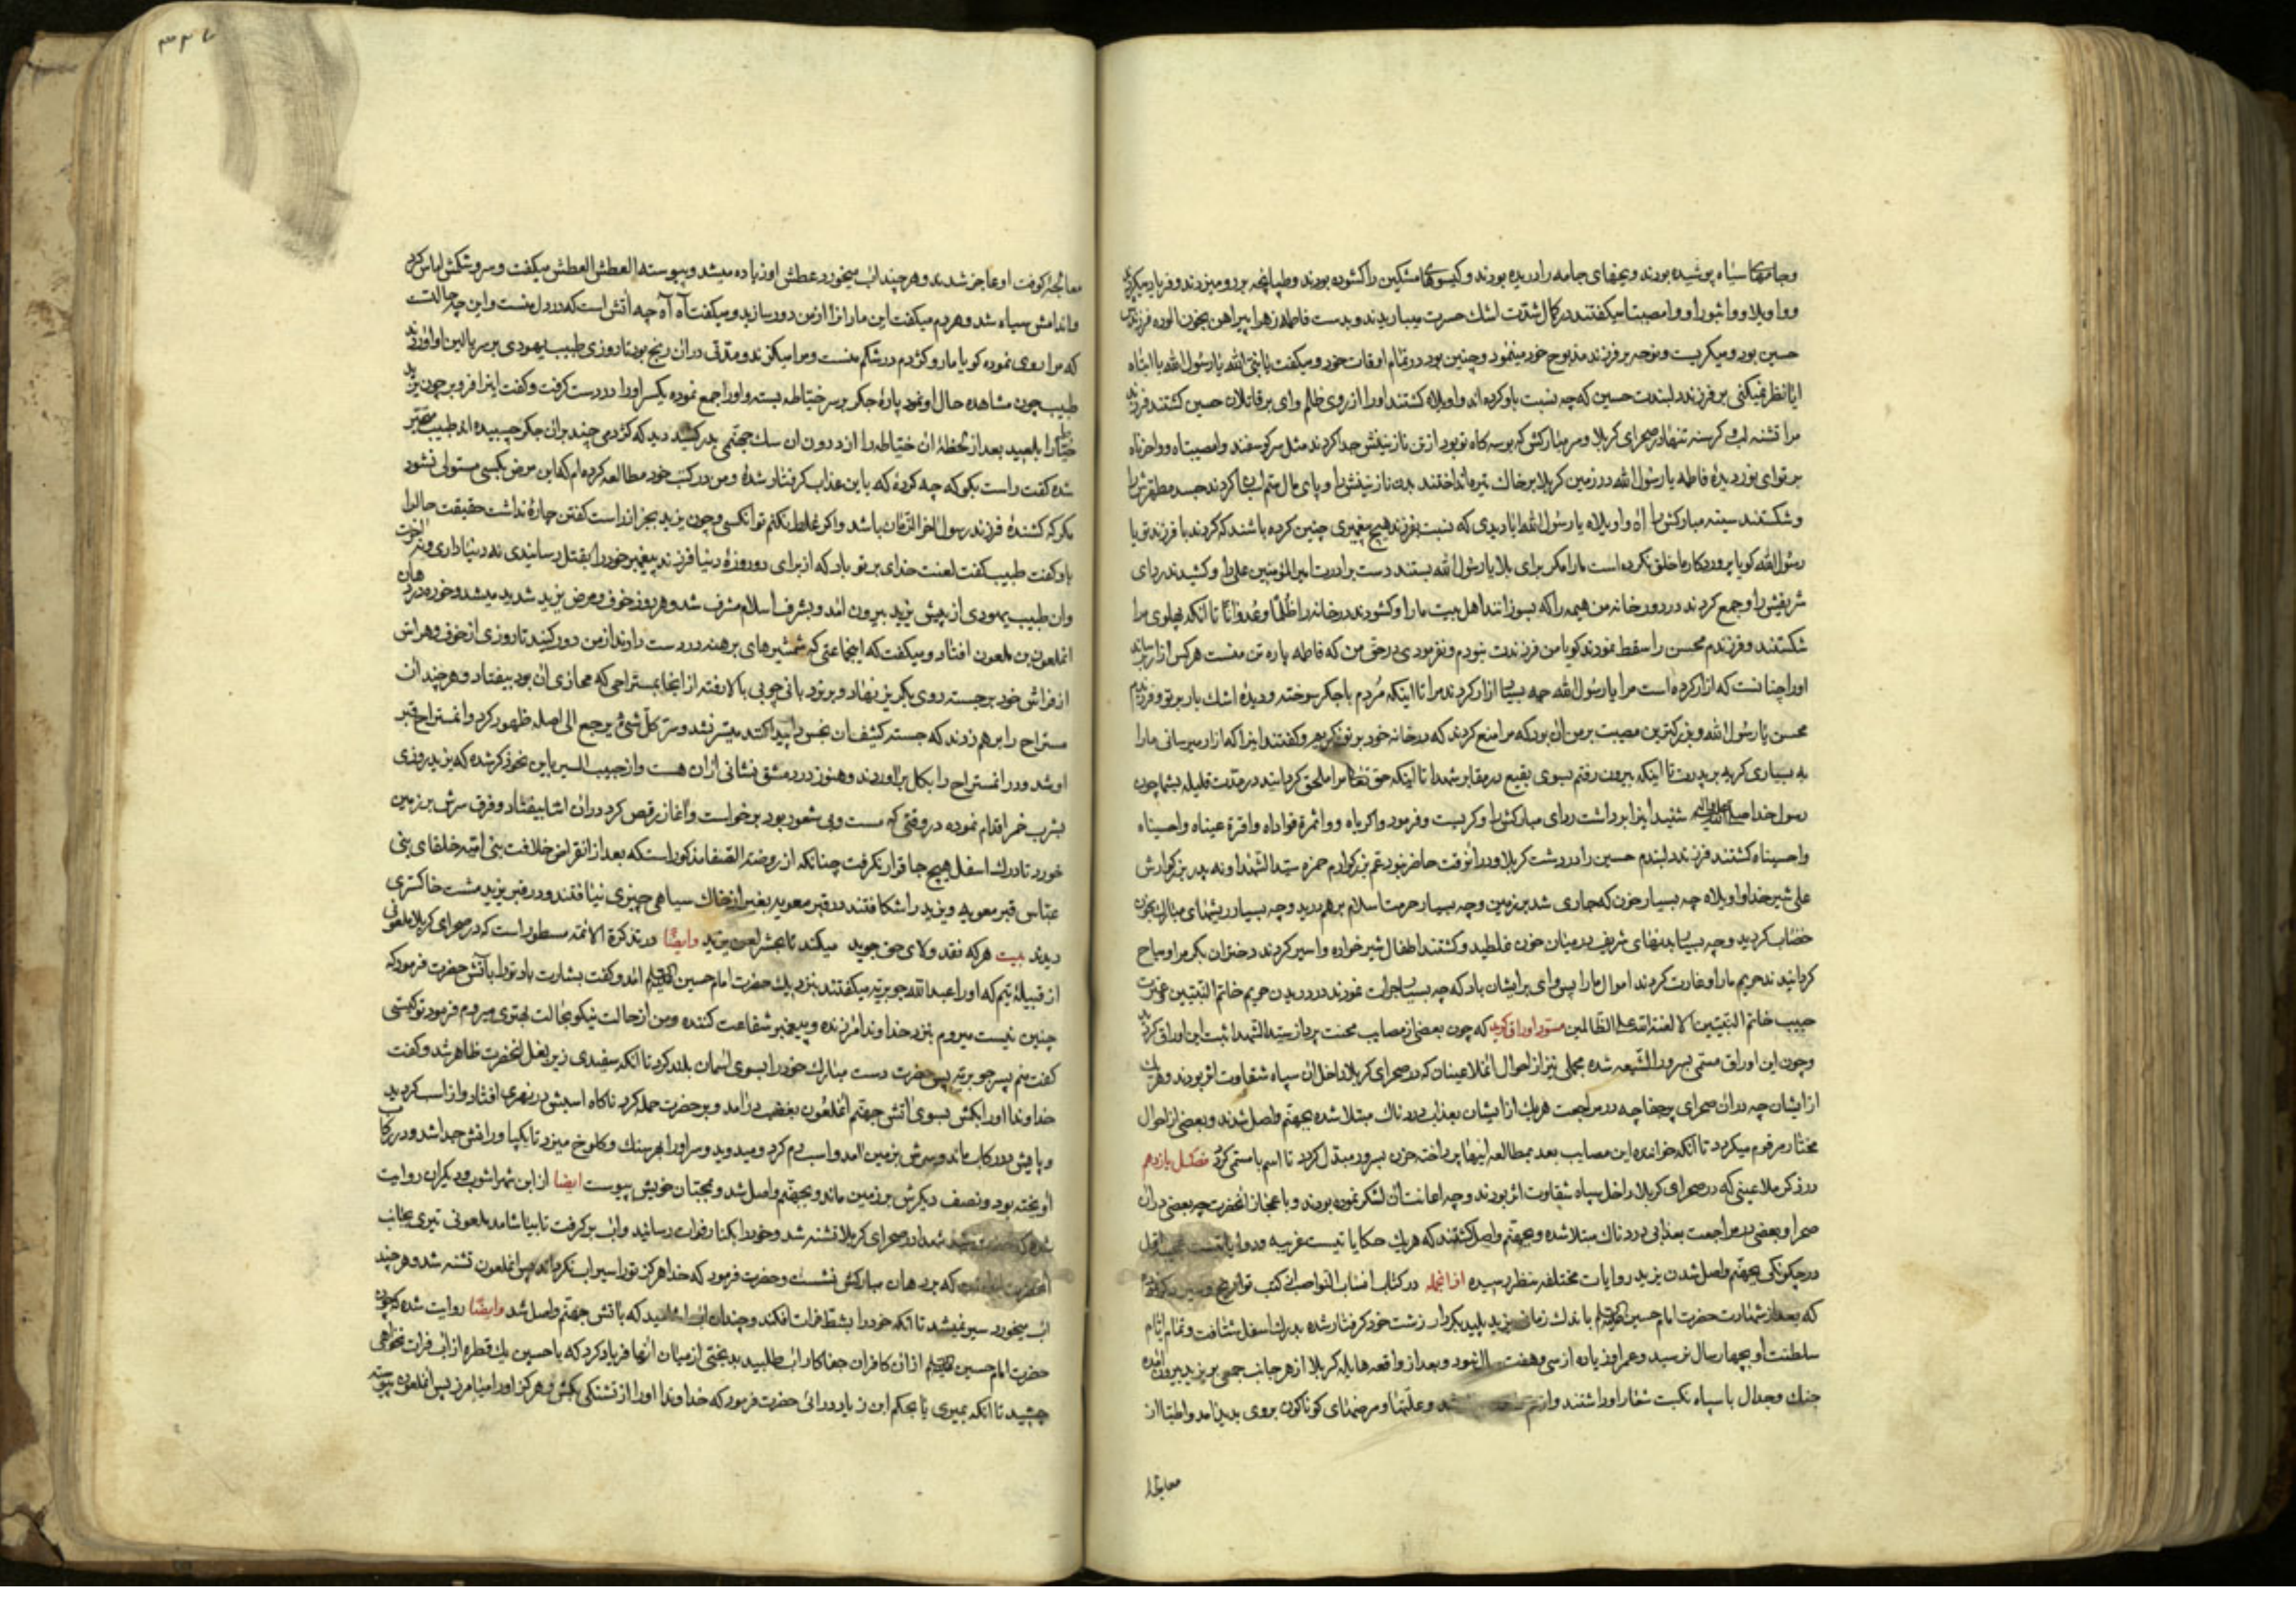 وجامهای سیاه پوشیده بودند ویخهای جامه را دریده بودند وکیسوهای مشکین را کشوده بودند وطپانچه بر رو میزدند وفریاد میکردند
وواویلا وواثبورا ووامصیبتا میکفتند در کمال شدت اشک حسرت میباریدند وبدست فاطمه زهرا پیراهن بخون الوده فرزندش
حسین بود ومیکریست ونوحه بر فرزند مذبوح خود مینمود وچنین بود در تمام اوقات خود ومیکفت یا نبی الله یا رسول الله یا ابتاه
ایا نظر نمیکنی بر فرزند دلبندت حسین که چه نسبت باو کرده اند واویلاه کشتند اورا از روی ظلم وای بر قاتلان حسین کشتند فرزند
مرا تشنه لب وکرسنه تنها در صحرای کربلا وسر مبارکش که بوسه کاه تو بود از تن نازنینش جدا کردند مثل سر کوسفند وامصیبتاه وواحزناه
بر تو ای نور دیدهٔ فاطمه یا رسول الله در زمین کربلا بر خاک تیره انداختند بدن نازنینش را وپای مال ستم اسبان کردند جسد مطهرش را
وشکستند سینه مبارکش را اه واویلاه یا رسول الله ایا دیدی که نسبت بفرزند هیچ پیغمبری چنین کرده باشند که کردند با فرزند تو یا
رسول الله کویا پروردکار ما خلق نکرده است مارا مکر برای بلا یا رسول الله بستند دست برادرت امیر المؤمنین علی را وکشیدند ردای
شریفش را وجمع کردند در در خانه من هیمه را که بسوزانند اهل بیت مارا وکشودند در خانه را ظلما وعدوانا تا انکه پهلوی مرا
شکستند وفرزندم محسن را سقط نمودند کویا من فرزندت نبودم ونفرمودی در حق من که فاطمه پاره تن منست هر کس ازار رساند
اورا چنانست که ازار کرده است مرا یا رسول الله چه بسیار ازار کردند مرا تا اینکه مردم با جکر سوخته ودیدهٔ اشک بار بر تو وفرزندم
محسن یا رسول الله وبزرکترین مصیبت بر من ان بود که مرا منع کردند که در خانه خود بر تو کریم وکفتند اینرا که ازار میرسانی مارا
به بسیاری کریه بر پدرت تا اینکه بیرون رفتم بسوی بقیع در مقابر شهدا تا اینکه حق تعالی مرا ملحق کردانید در مدت قلیله بشما چون
رسول خدا صلی الله علیه واله شنید اینرا برداشت ردای مبارکش را وکریست وفرمود واکرباه وواثمرة فواداه واقرة عیناه واحسیناه
واحسیناه کشتند فرزند دلبندم حسین را در دشت کربلا ودر انوقت حاضر نبود عم بزرکوارم حمزه سید الشهدا ونه پدر بزرکوارش
علی شیر خدا واویلاه چه بسیار خون که جاری شد بر زمین وچه بسیار حرمت اسلام بر هم درید وچه بسیار ریشهای مبارک بخون
خضاب کردید وچه بسیار بدنهای شریف در میان خون غلطید وکشتند اطفال شیر خواره واسیر کردند دختران بکر مرا ومباح
کردانیدند حریم مارا وغارت کردند اموال مارا پس وای بر ایشان باد که چه بسیار جرات نمودند در دریدن حریم خاتم النبیین وعترت
حبیب خاتم النبیین الا لعنة الله علی الظالمین مسود اوراق کوید که چون بعضی از مصایب محنت پرداز سید الشهدا ثبت این اوراق کردید
وچون این اوراق مسمی بسرور الشیعه شده مجملی نیز از احوال انملاعینان که در صحرای کربلا داخل ان سپاه شقاوت اثر بودند وهر یک
از ایشان چه در ان صحرای پر جفا چه در مراجعت هر یک از ایشان بعذاب دردناک مبتلا شده بجهنم واصل شدند وبعضی از احوال
مختار مرقوم میکردد تا انکه خواننده این مصایب بعد بمطالعه اینها پرداخته حزن بسرور مبدل کردد تا اسم با مسمی کردد فصل یازدهم
در ذکر ملاعینی که در صحرای کربلا داخل سپاه شقاوت اثر بودند وچه اعانت ان لشکر نموده بودند وباعجاز انحضرت چه بعضی در ان
صحرا وبعضی در مراجعت بعذابی دردناک مبتلا شده وبجهنم واصل کشتند که هر یک حکایاتیست غریبه
در چکونکی بجهنم واصل شدن یزید روایات مختلفه بنظر رسیده از انجمله در کتاب انساب النواصب از کتب تواریخ
که بعد از شهادت حضرت امام حسین باندک زمان یزید پلید بکردار زشت خود کرفتار شده بدرک اسفل شتافت وتمام ایام
سلطنت او بچهار سال نرسید وعمر او زیاده از سی وهفت سال نبود وبعد از واقعه هایله کربلا از هر جانب جمعی بر یزید بیرون امده
جنک وجدال با سپاه نکبت شعار او داشتند وعلتها ومرضهای کوناکون بروی پدید امد واطبا از
معالجهٔ
۳۳۷
معالجهٔ کوفت او عاجز شدند وهر چند اب میخورد عطش او زیاده میشد وپیوسته العطش العطش میکفت وسر وشکمش اماس کرد
واندامش سیاه شد وهر دم میکفت این ماران را از من دور سازید ومیکفت آه آه چه آتش است که در دل منست واین چه حالت
که مرا روی نموده کویا مار وکژدم در شکم منست ومرا میکزند ومدتی در ان رنج بود تا روزی طبیب یهودی بر سر بالین او اوردند
طبیب چون مشاهده حال او نمود پارهٔ جکر بر سر خیاطه بسته واورا جمع نموده یکسر اورا در دست کرفت وکفت اینرا فرو بر چون یزید
خیاطه را بلعید بعد از لحظهٔ ان خیاطه را از درون ان سک جهنمی بدر کشید دید که کژدمی چند بران جکر چسپیده اند طبیب متحیر
شده کفت راست بکو که چه کردهٔ که باین عذاب کرفتار شدهٔ ومن در کتب خود مطالعه کرده ام که این مرض بکسی مستولی نشود
مکر که کشندهٔ فرزند رسول اخر الزمان باشد واکر غلط نکنم تو انکسی وچون یزید بجز از راست کفتن چارهٔ نداشت حقیقت حال را
باو کفت طبیب کفت لعنت خدای بر تو باد که از برای دو روزهٔ دنیا فرزند پیغمبر خود را بقتل رسانیدی نه دنیا داری ونه اخرت
وان طبیب یهودی از پیش یزید بیرون امد وبشرف اسلام مشرف شد وهر روز خوف ومرض یزید شدید میشد وخوره در دهان
انملعون بن ملعون افتاد ومیکفت که اینجماعتی که شمشیرهای برهنه در دست دارند از من دور کنید تا روزی از خوف وهراس
از فراش خود برجسته روی بکریز نهاد وبر نردبانی چوبی بالا رفته از انجا بمستراحی که محاذی ان بود بیفتاد وهر چند ان
مستراح را بر هم زدند که جسته کثیف ان نجس را پیدا کنند میسر نشد وسر کل شیء یرجع الی اصله ظهور کرد وانمستراح قبر
او شد ودر انمستراح را بکل براوردند وهنوز در دمشق نشانی از ان هست واز حبیب السیر باین نحو ذکر شده که یزید روزی
بشرب خمر اقدام نموده در وقتی که مست وبی شعور بود برخواست وآغاز رقص کرد در ان اثنا بیفتاد وفرق سرش بر زمین
خورد تا درک اسفل هیچ جا قرار نکرفت چنانکه از روضة الصفا مذکور است که بعد از انقراض خلافت بنی امیه خلفای بنی
عباس قبر معویه ویزید را شکافتند در قبر معویه بغیر از خاک سیاهی چیزی نیافتند ودر قبر یزید مشت خاکستری
دیدند بیت هر که نقد ولای حق جوید میکند تا بحشر لعن یزید وایضا در تذکرة الائمه مسطور است که در صحرای کربلا ملعونی
از قبیلهٔ تیم که اورا عبد الله جویریه میکفتند بنزدیک حضرت امام حسین امد وکفت بشارت باد تورا بآتش حضرت فرمود که
چنین نیست میروم بنزد خداوند امرزنده وپیغمبر شفاعت کننده ومن از حالت نیکو بحالت بهتری میروم فرمود تو کیستی
کفت منم پسر جویریه پس حضرت دست مبارک خود را بسوی اسمان بلند کرد تا انکه سفیدی زیر بغل انحضرت ظاهر شد وکفت
خداوندا اورا بکش بسوی آتش جهنم انملعون بغضب درآمد وبر حضرت حمله کرد ناکاه اسبش در نهری افتاد واز اسب کردید
وپایش در رکاب ماند وسرش بزمین امد واسب رم کرد ومیدوید وسر اورا بهر سنک وکلوخ میزد تا یکپا ورانش جدا شد ودر رکاب
آویخته بود ونصف دیکرش بر زمین ماند وبجهنم واصل شد وبمحبتان خویش پیوست ایضا از ابن شهراشوب ودیکران روایت
شده که حضرت سید شهدا در صحرای کربلا تشنه شد وخود را بکنار فرات رسانید واب بر کرفت تا بیاشامد ملعونی تیری بجانب
انحضرت انداخت که بر دهان مبارکش نشست وحضرت فرمود که خدا هرکز تورا سیراب نکرداند پس انملعون تشنه شد وهر چند
اب میخورد سیر نمیشد تا انکه خود را بشط فرات افکند وچندان اب اشامید که باتش جهنم واصل شد وایضا روایت شده که چون
حضرت امام حسین از ان کافران جفاکار اب طلبید بدبختی از میان انها فریاد کرد که یا حسین یک قطره از اب فرات نخواهی
چشید تا انکه بمیری یا بحکم ابن زیاد درائی حضرت فرمود که خداوندا اورا از تشنکی بکش وهرکز اورا میامرز پس انملعون پیوسته